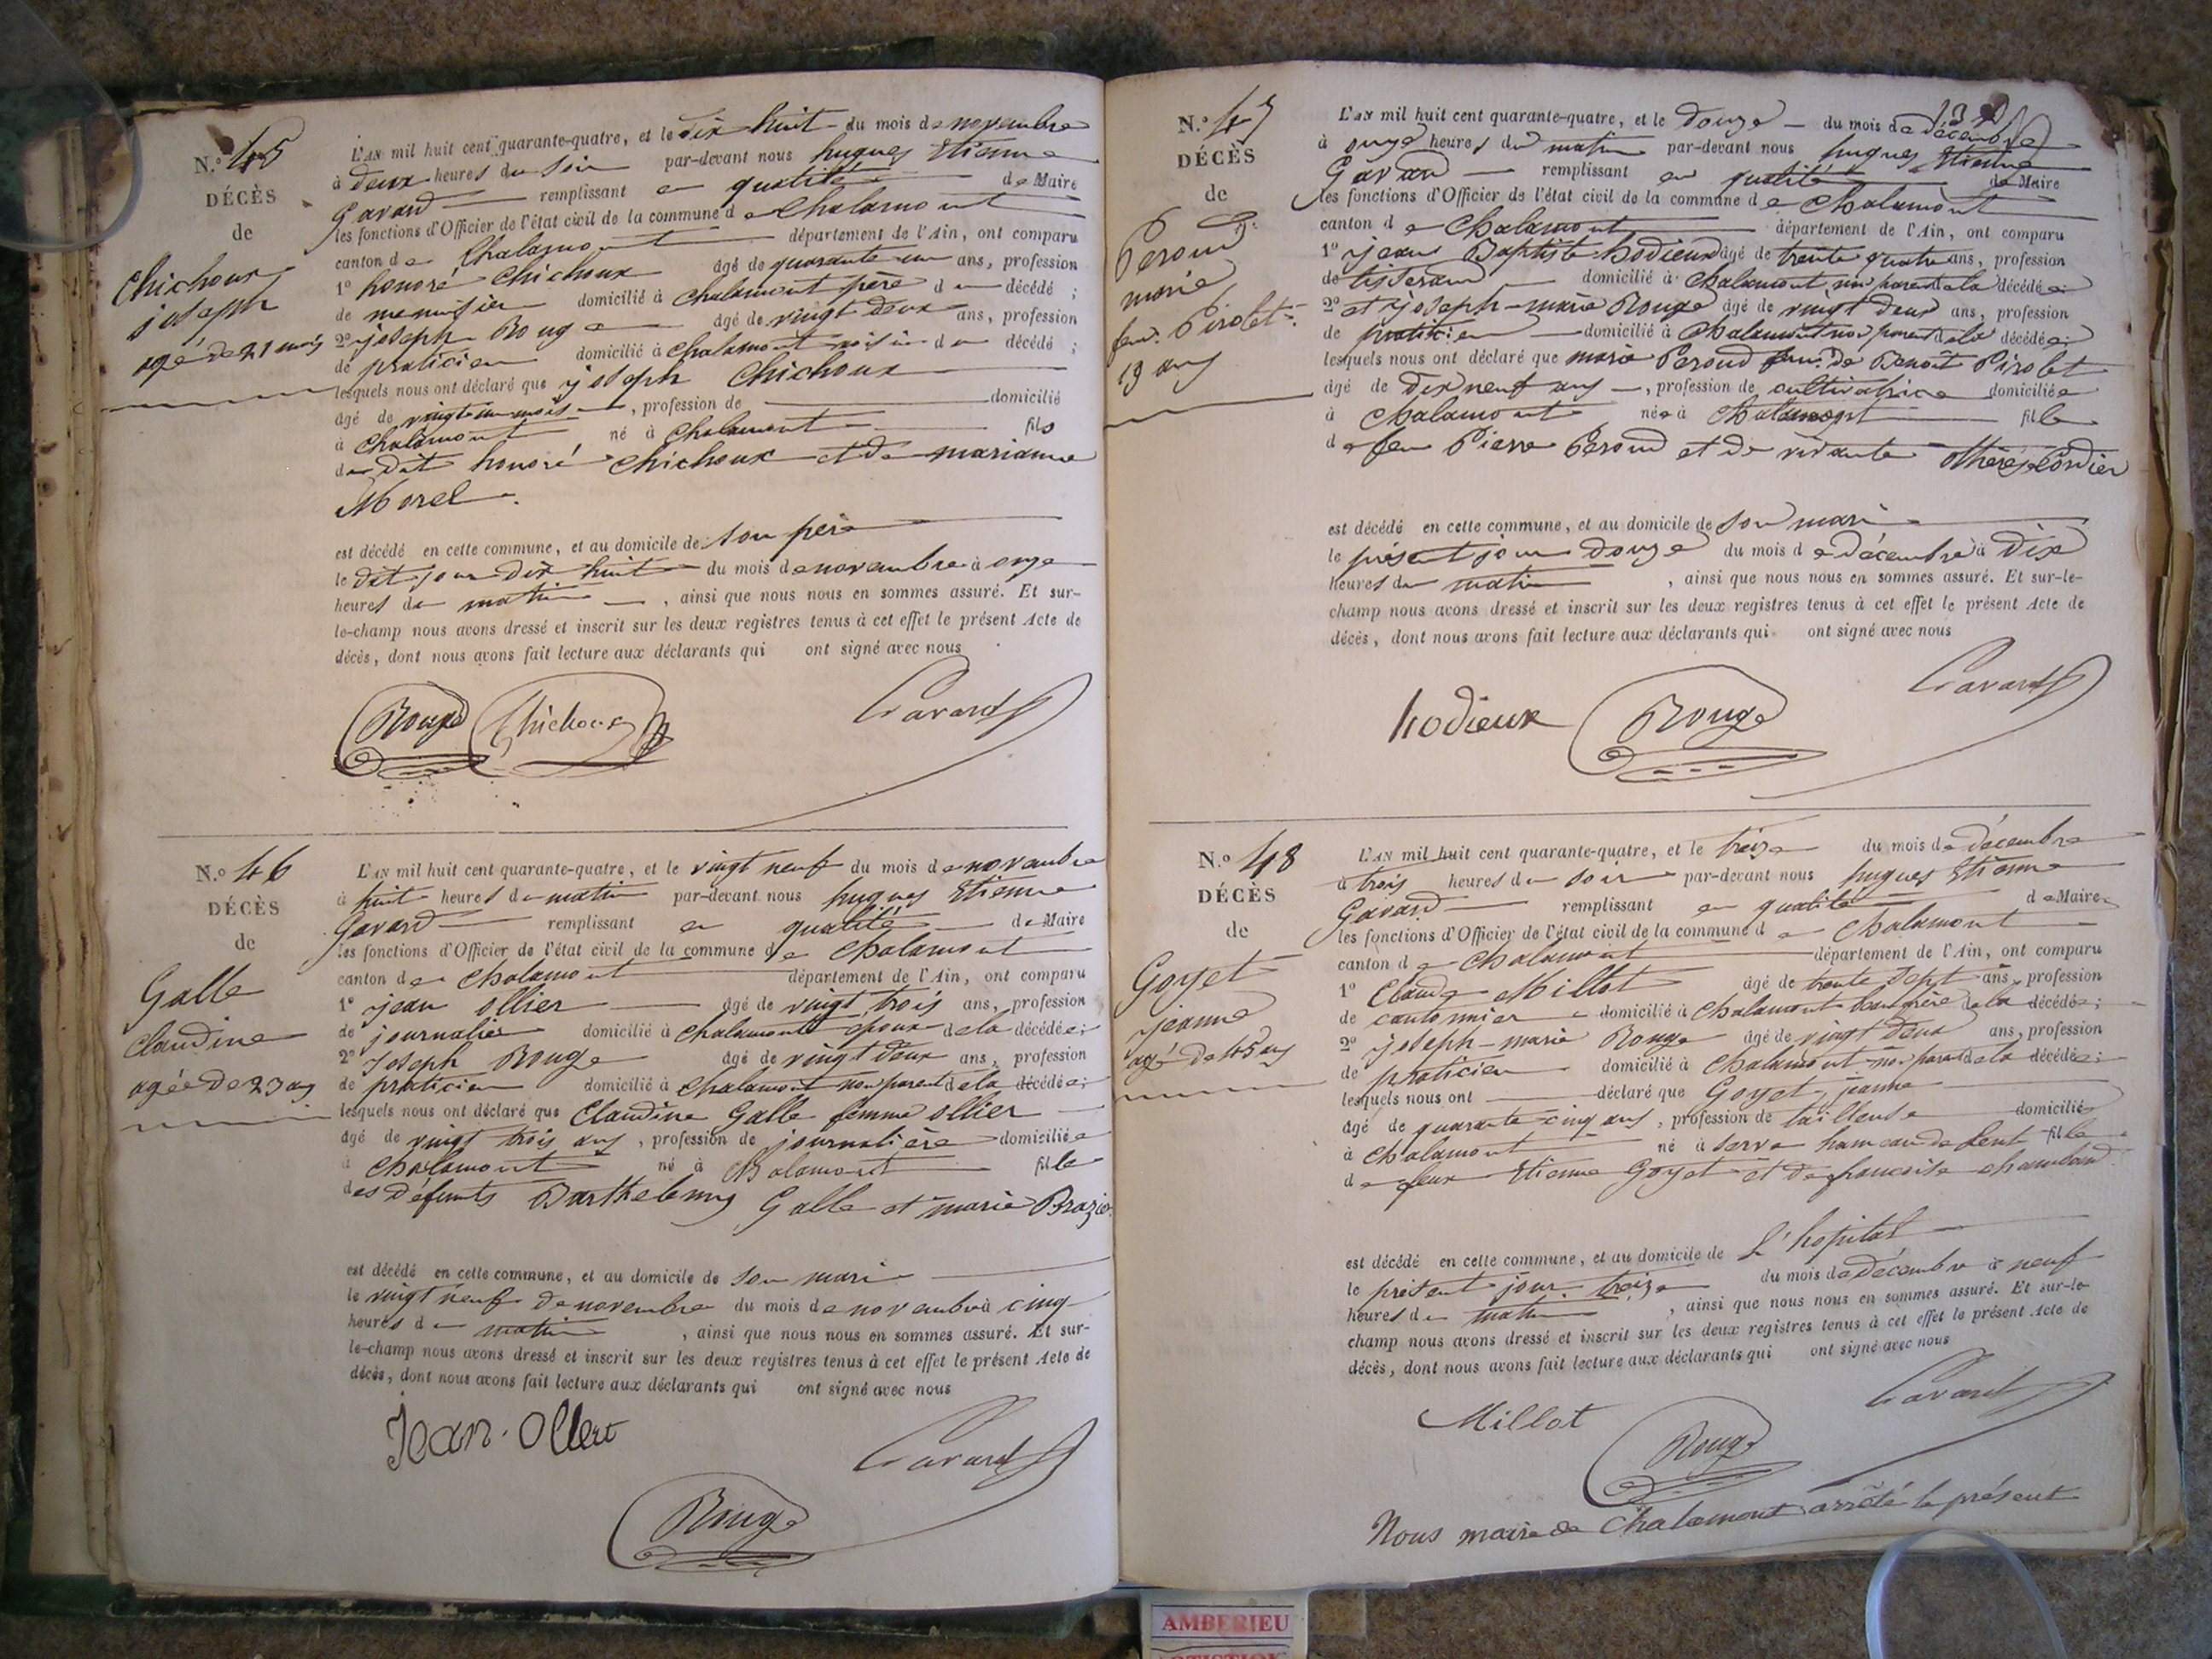 N.º 45
DÉCÈS
de
Chichoux
joseph
agé de 21 mois
L'AN mil huit cent quarante-quatre, et le dix huit du mois de novembre
à deux heures du soir par-devant nous hugues Etienne
Gavard remplissant en qualité de Maire
les fonctions d'Officier de l'état civil de la commune de Chalamont
canton de Chalamont département de l'Ain, ont comparu
1º honoré Chichoux âgé de quarante un ans, profession
de menuisier domicilié à Chalamont père du décédé ;
2º joseph Rouge âgé de vingt deux ans, profession
de praticien domicilié à Chalamont voisin du décédé ;
lesquels nous ont déclaré que joseph Chichoux
âgé de vingt un mois , profession de domicilié
à Chalamont né à Chalamont fils
du dit honoré Chichoux et de marianne
Morel.
est décédé en cette commune, et au domicile de son père
le dit jour dix huit du mois de novembre à onze
heures du matin , ainsi que nous nous en sommes assuré. Et sur-
le-champ nous avons dressé et inscrit sur les deux registres tenus à cet effet le présent Acte de
décès, dont nous avons fait lecture aux déclarants qui ont signé avec nous
Rouge Chichoux Gavard
N.º 46
DÉCÈS
de
Galle
Claudine
agée de 23 ans
L'AN mil huit cent quarante-quatre, et le vingt neuf du mois de novembre
à huit heures du matin par-devant nous hugues Etienne
Gavard remplissant en qualité de Maire
les fonctions d'Officier de l'état civil de la commune de Chalamont
canton de Chalamont département de l'Ain, ont comparu
1º jean ollier âgé de vingt trois ans, profession
de journalier domicilié à Chalamont époux de la décédée ;
2º Joseph Rouge âgé de vingt deux ans, profession
de praticien domicilié à Chalamont non parent de la décédée ;
lesquels nous ont déclaré que Claudine Galle femme ollier
âgé de vingt trois ans , profession de journalière domiciliée
à Chalamont né à Chalamont fille
des défunts Barthelemy Galle et marie
est décédé en cette commune, et au domicile de son mari
le vingt neuf de novembre du mois de novembre à cinq
heures du matin , ainsi que nous nous en sommes assuré. Et sur-
le-champ nous avons dressé et inscrit sur les deux registres tenus à cet effet le présent Acte de
décès, dont nous avons fait lecture aux déclarants qui ont signé avec nous
Jean Gavard
Rouge
N.º 47
DÉCÈS
de
Peroud
marie
fem. Pirolet
19 ans
L'AN mil huit cent quarante-quatre, et le douze du mois de décembre
à onze heures du matin par-devant nous hugues Etienne
Gavard remplissant en qualité de Maire
les fonctions d'Officier de l'état civil de la commune de Chalamont
canton de Chalamont département de l'Ain, ont comparu
1º jean Baptiste hodieux âgé de trente quatre ans, profession
de tisserand domicilié à Chalamont non parent de la décédée
2º et joseph-marie Rouge âgé de vingt deux ans, profession
de praticien domicilié à Chalamont non parent de la décédée ;
lesquels nous ont déclaré que marie Peroud fem. de Benoît Pirolet
âgé de dix neuf ans , profession de cultivatrice domiciliée
à Chalamont née à Chalamont fille
de feu Pierre Peroud et de vivante thérèse Cordier
est décédé en cette commune, et au domicile de son mari
le présent jour douze du mois de décembre à dix
heures du matin , ainsi que nous nous en sommes assuré. Et sur-le-
champ nous avons dressé et inscrit sur les deux registres tenus à cet effet le présent Acte de
décès, dont nous avons fait lecture aux déclarants qui ont signé avec nous
hodieux Rouge Gavard
N.º 48
DÉCÈS
de
Goyet
jeanne
agé de 45 ans
L'AN mil huit cent quarante-quatre, et le treize du mois de décembre
à trois heures du soir par-devant nous hugues Etienne
Gavard remplissant en qualité de Maire
les fonctions d'Officier de l'état civil de la commune de Chalamont
canton de Chalamont département de l'Ain, ont comparu
1º Claude Millot âgé de trente sept ans, profession
de cantonnier domicilié à Chalamont beau frère de la décédée ;
2º joseph-marie Rouge âgé de vingt deux ans, profession
de praticien domicilié à Chalamont non parent de la décédée ;
lesquels nous ont déclaré que Goyet jeanne
âgé de quarante cinq ans , profession de tailleuse domicilié
à Chalamont né à Serve hameau de Lent fille
de feux Etienne Goyet et de francoise
est décédé en cette commune, et au domicile de L'hopital
le présent jour treize du mois de décembre à neuf
heures du matin , ainsi que nous nous en sommes assuré. Et sur-le-
champ nous avons dressé et inscrit sur les deux registres tenus à cet effet le présent Acte de
décès, dont nous avons fait lecture aux déclarants qui ont signé avec nous
Millot Gavard
Rouge
Nous maire de Chalamont arrêté le présent
AMBERIEU